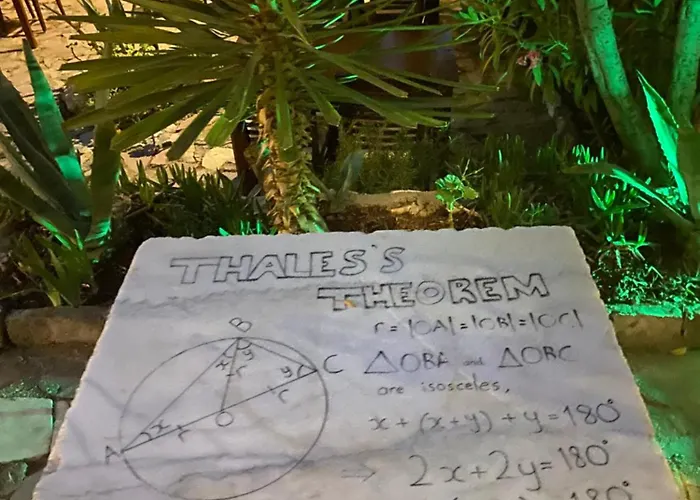 THALES'S
THEOREM
r = |OA| = |OB| = |OC|
△OBA and △OBC
are isosceles,
x + (x + y) + y = 180°
⇒ 2x + 2y = 180°
180°
B
x y
r
y C
r
O
A x r